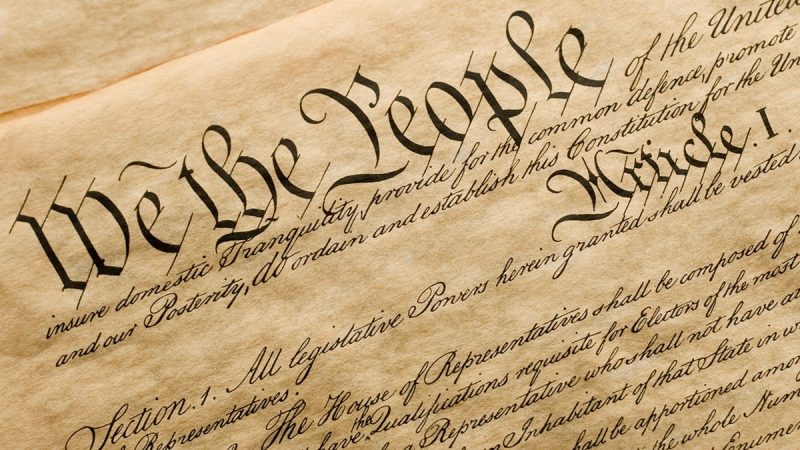 We the People of the United
insure domestic Tranquility, provide for the common defence, promote
and our Posterity, do ordain and establish this Constitution for the Uni
Article. I.
Section. 1. All legislative Powers herein granted shall be vested
of Representatives.
The House of Representatives shall be composed of
have the Qualifications requisite for Electors of the most
Representative who shall not have at
Inhabitant of that State in w
shall be apportioned amon
the whole Num
Enumer